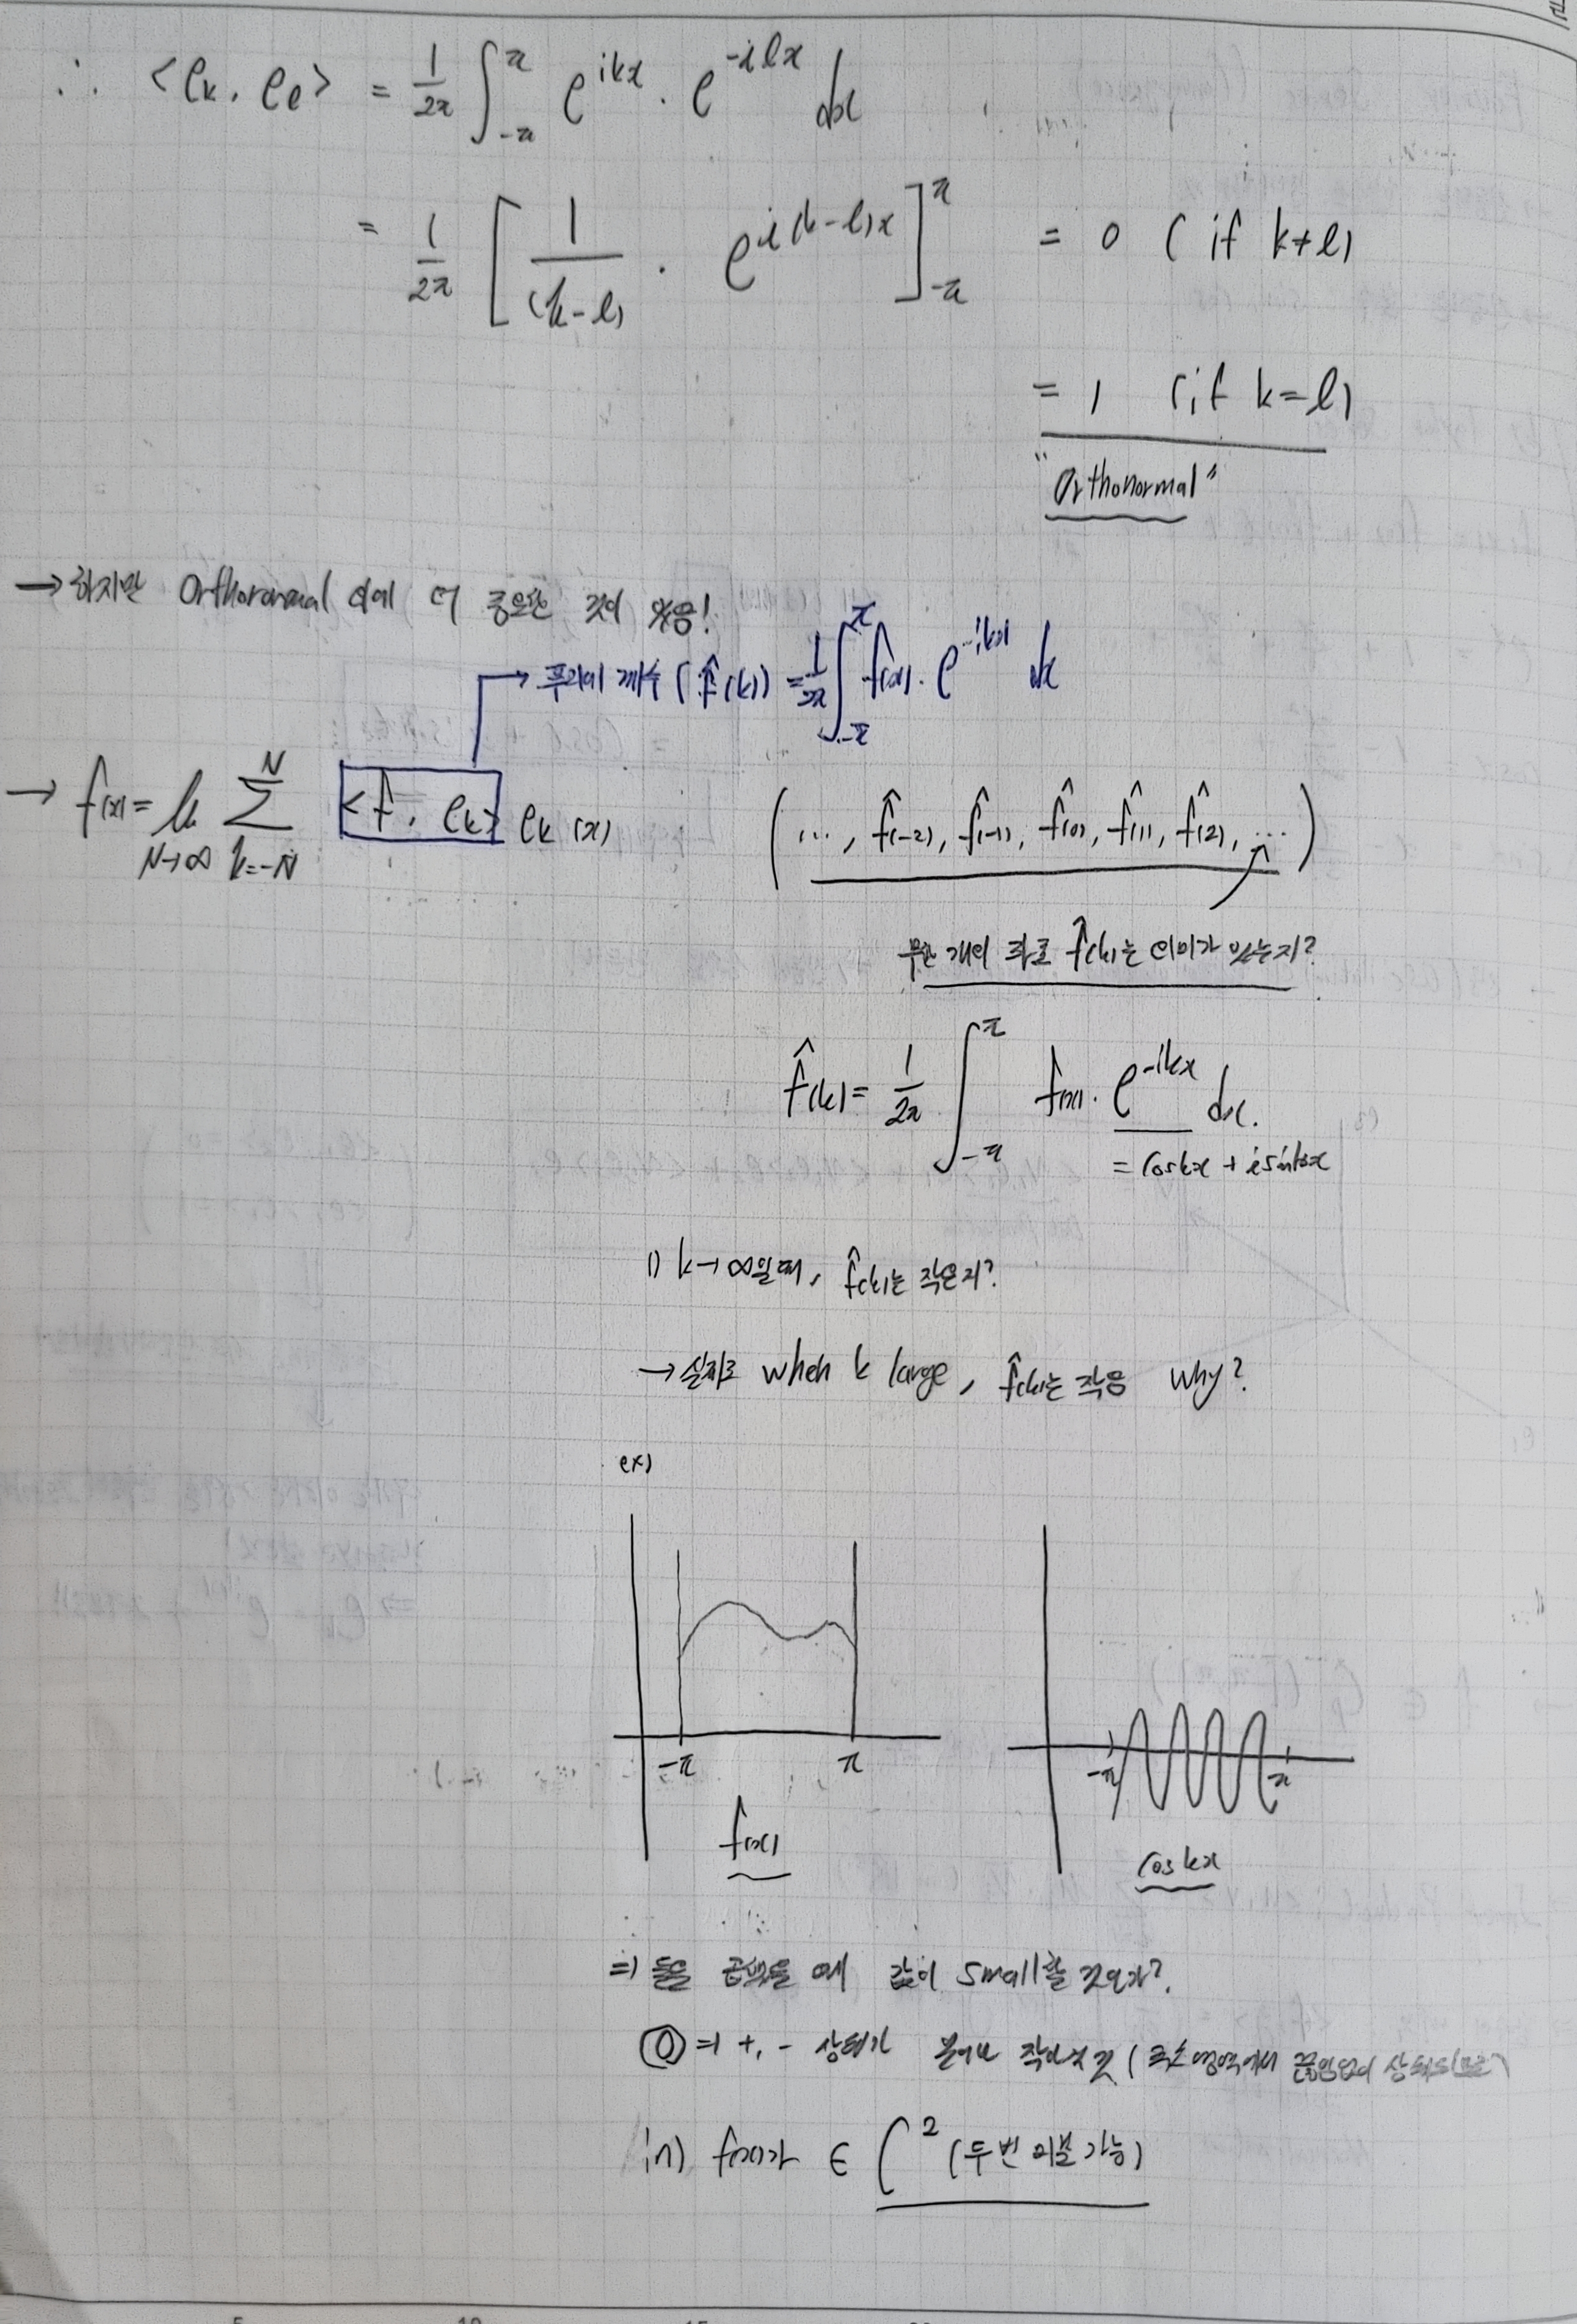 ∴ <e_k, e_l> = 1/2π ∫_{-π}^{π} e^{ikx} · e^{-ilx} dx
= 1/2π [ 1/(k-l) · e^{i(k-l)x} ]_{-π}^{π} = 0 ( if k≠l)
= 1 (if k=l)
"Orthonormal"
→ 하지만 Orthonormal 외에 더 중요한 것이 있음!
→ 푸리에 계수 ( f̂(k)) = 1/2π ∫_{-π}^{π} f(x)· e^{-ikx} dx
→ f(x) = lim_{N→∞} Σ_{k=-N}^{N} <f, e_k> e_k (x)
( ..., f̂(-2), f̂(-1), f̂(0), f̂(1), f̂(2), ... )
무한 개의 좌표 f̂(k)는 의미가 있는지?
f̂(k) = 1/2π ∫_{-π}^{π} f(x)· e^{-ikx} dx.
= coskx + isinkx
1) k→∞일 때, f̂(k)는 작은지?
→ 실제로 when k large, f̂(k)는 작음 why?
ex)
-π π
f(x)
-π π
cos kx
⇒ 둘을 곱했을 때 값이 small할 것인가?
⓪ ⇒ +, - 상태가 작아질 것 ( 에서 끊임없이
in) f(x)가 ∈ C² (두번 미분 가능)